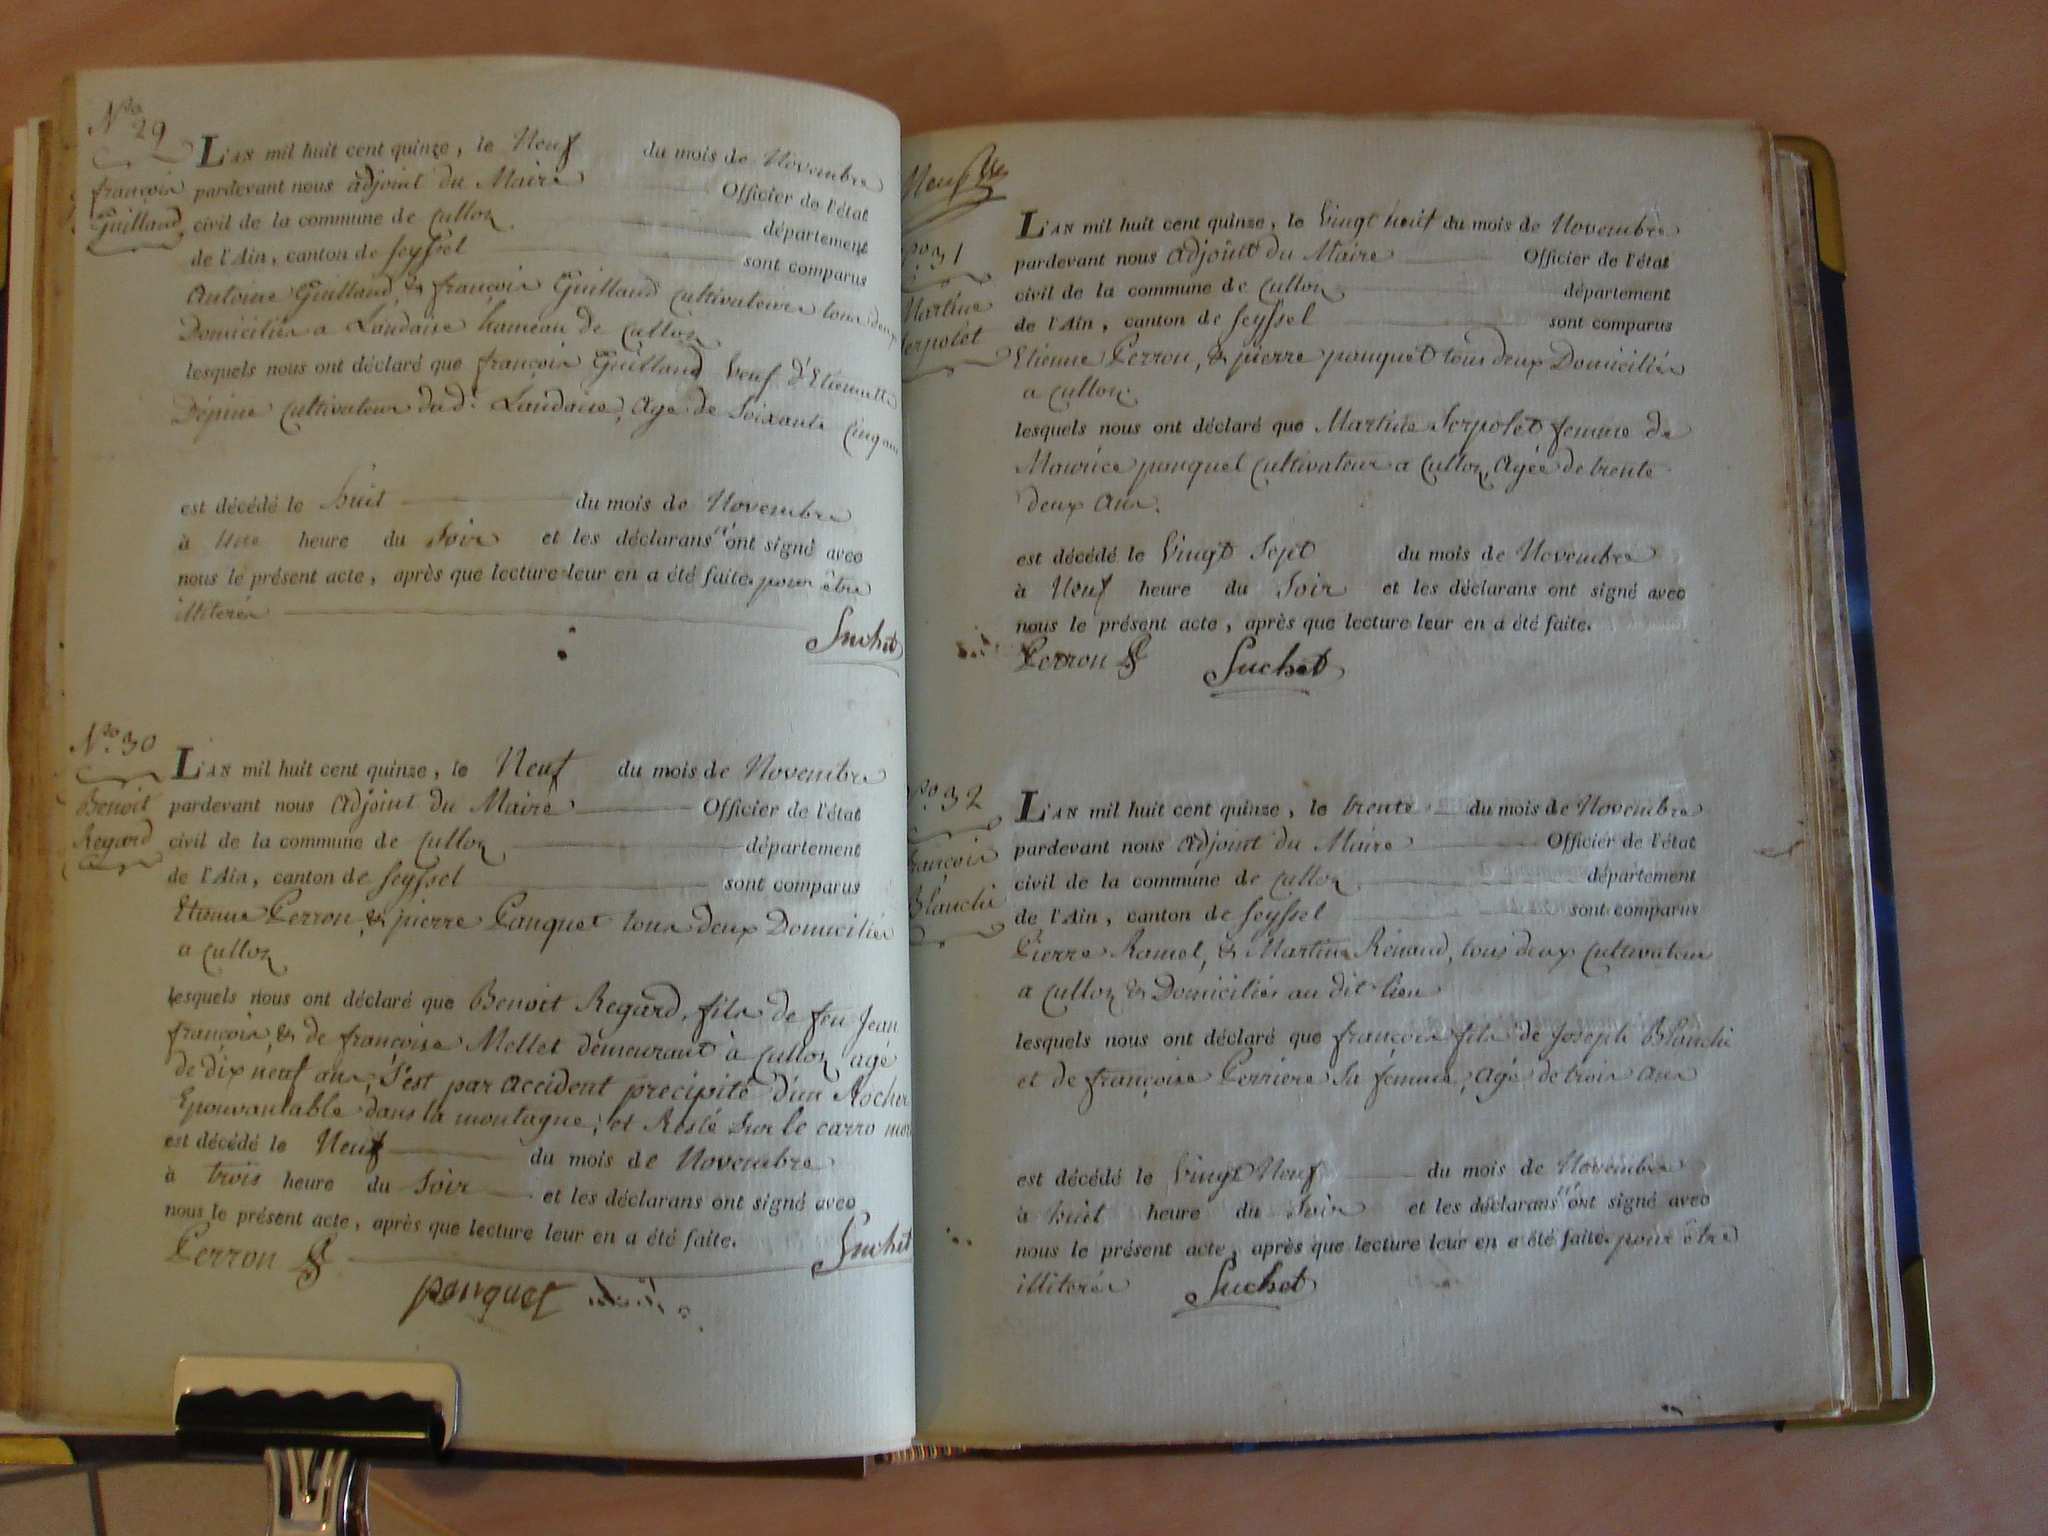 N.ro 29
françois
Guilland
L'AN mil huit cent quinze, le Neuf du mois de Novembre
pardevant nous adjoint du Maire Officier de l'état
civil de la commune de Culloz département
de l'Ain, canton de Seyssel sont comparus
Antoine Guilland, & françois Guilland cultivateurs tous deux
Domiciliés a Landaise hameau de Culloz
lesquels nous ont déclaré que françois Guilland Veuf d'Etiennette
Dépine cultivateur dud.t Landaise, age de Soixante Cinq ans
est décédé le huit du mois de Novembre
à Une heure du Soir et les déclarans n'ont signé avec
nous le présent acte, après que lecture leur en a été faite. pour être
illiterés
Suchet
N.ro 30
Benoit
Regard
L'AN mil huit cent quinze, le Neuf du mois de Novembre
pardevant nous adjoint du Maire Officier de l'état
civil de la commune de Culloz département
de l'Ain, canton de Seyssel sont comparus
Etienne Perron, & pierre Panquet tous deux Domiciliés
a Culloz
lesquels nous ont déclaré que Benoit Regard, fils de feu Jean
françois, & de françoise Mellet demeurant à Culloz, agé
de dix neuf ans, S'est par accident precipité d'un Rocher
Epouvantable dans la montagne; et Resté Sur le carro mort
est décédé le Neuf du mois de Novembre
à trois heure du Soir et les déclarans ont signé avec
nous le présent acte, après que lecture leur en a été faite.
Perron Suchet
panquet
Neuf
N.ro 31
Martine
Serpolet
L'AN mil huit cent quinze, le Vingt huit du mois de Novembre
pardevant nous adjoint du Maire Officier de l'état
civil de la commune de Culloz département
de l'Ain, canton de Seyssel sont comparus
Etienne Perron, & pierre panquet tous deux Domiciliés
a Culloz
lesquels nous ont déclaré que Martine Serpolet, femme de
Maurice panquet cultivateur a Culloz, Agée de trente
deux ans.
est décédé le Vingt Sept du mois de Novembre
à Neuf heure du Soir et les déclarans ont signé avec
nous le présent acte, après que lecture leur en a été faite.
Perron Suchet
N.ro 32
françois
Blanchi
L'AN mil huit cent quinze, le trente du mois de Novembre
pardevant nous adjoint du Maire Officier de l'état
civil de la commune de Culloz département
de l'Ain, canton de Seyssel sont comparus
Pierre Ramel, & Martin Rénaud, tous deux cultivateurs
a Culloz & Domiciliés au dit lieu
lesquels nous ont déclaré que françois fils de Joseph Blanchi
et de françoise Perriere Sa femme, agé de trois ans
est décédé le Vingt Neuf du mois de Novembre
à huit heure du Soir et les déclarans n'ont signé avec
nous le présent acte, après que lecture leur en a été faite. pour être
illiterés Suchet